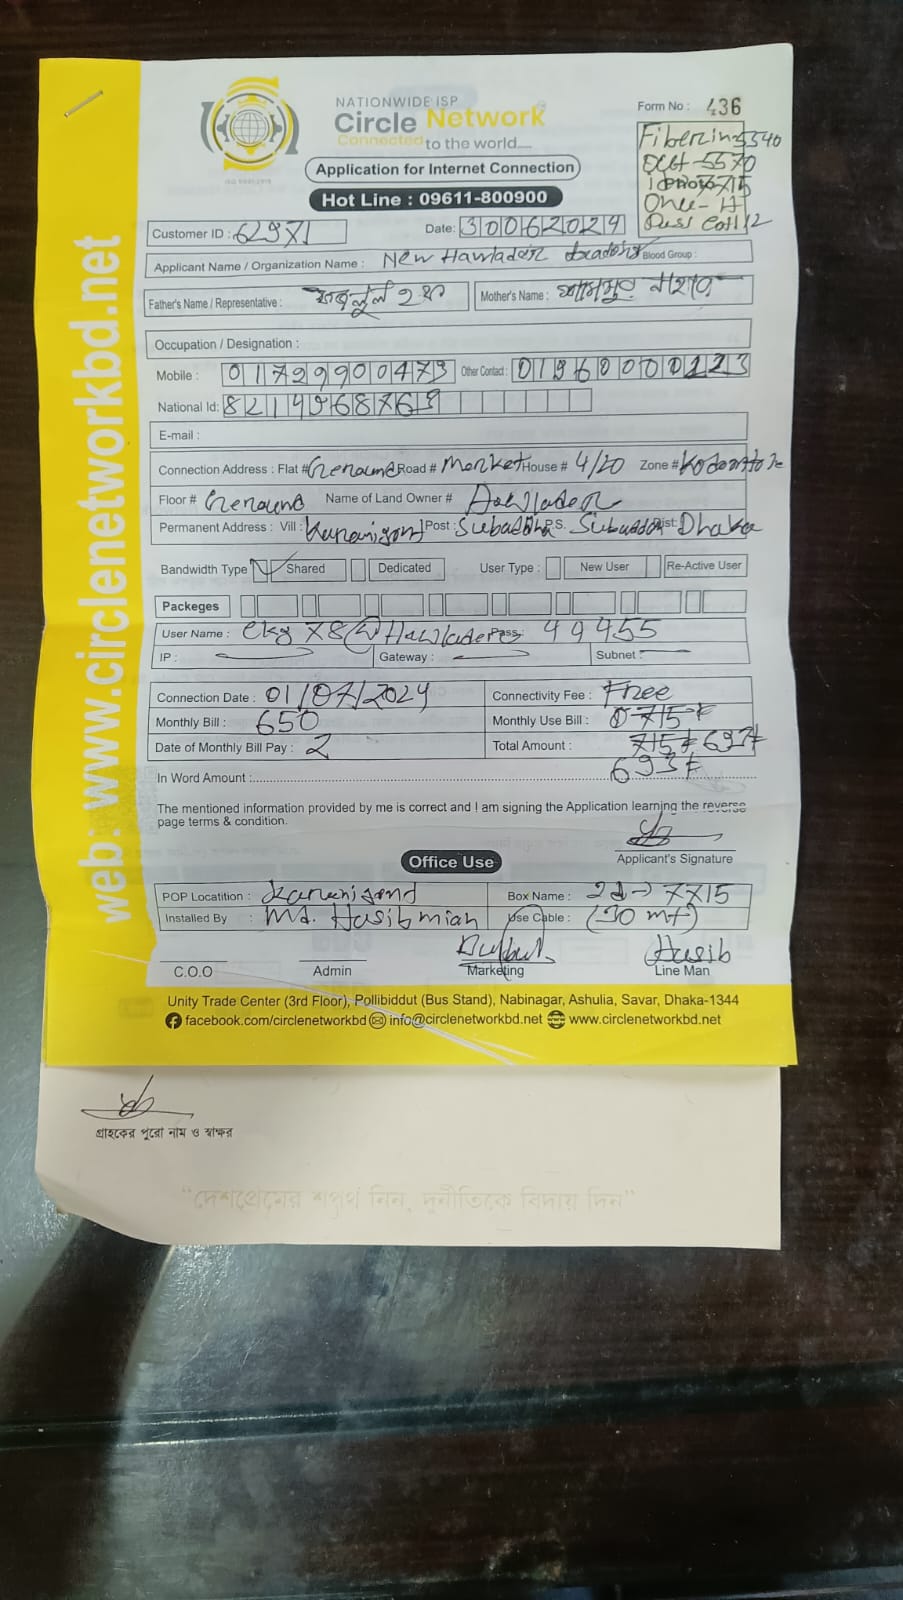 web: www.circlenetworkbd.net
NATIONWIDE ISP
Circle Network
Connected to the world....
Application for Internet Connection
Hot Line : 09611-800900
Form No : 436
Customer ID :
Date: 30062024
Applicant Name / Organization Name : New Hawlader Blood Group :
Father's Name / Representative : ফজলুল হক Mother's Name : নাহার
Occupation / Designation :
Mobile : 01729900473 Other Contact : 01960000123
National Id:
E-mail :
Connection Address : Flat # Road # Market House # 4/20 Zone #
Floor # Name of Land Owner # Hawlader
Permanent Address : Vill : Post : P.S. Dist: Dhaka
Bandwidth Type Shared Dedicated User Type : New User Re-Active User
Packeges
User Name : Pass: 49455
IP : Gateway : Subnet :
Connection Date : 01/07/2024 Connectivity Fee : Free
Monthly Bill : 650 Monthly Use Bill : 715
Date of Monthly Bill Pay : 2 Total Amount : 715
693
In Word Amount :
The mentioned information provided by me is correct and I am signing the Application learning the reverse
page terms & condition.
Applicant's Signature
Office Use
POP Locatition : Box Name : 7715
Installed By : Md. Hasib miah Use Cable : (30 mt)
Hasib
C.O.O Admin Marketing Line Man
Unity Trade Center (3rd Floor), Pollibiddut (Bus Stand), Nabinagar, Ashulia, Savar, Dhaka-1344
facebook.com/circlenetworkbd info@circlenetworkbd.net www.circlenetworkbd.net
গ্রাহকের পুরো নাম ও স্বাক্ষর
“দেশপ্রেমের শপথ নিন, দুর্নীতিকে বিদায় দিন”